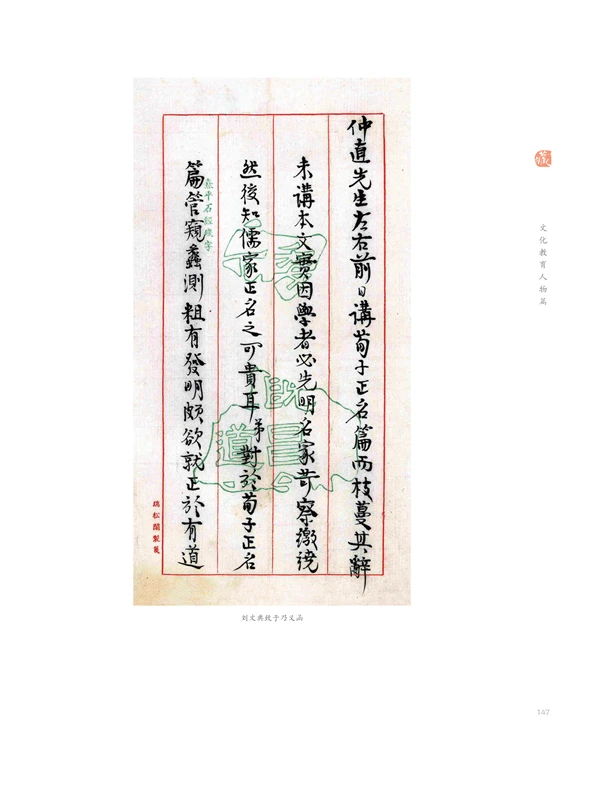 仲直先生左右前日講荀子正名篇而枝蔓其辭
未講本文實因學者必先明名家苛察繳繞
然後知儒家正名之可貴耳弟對於荀子正名
篇管窺蠡測粗有發明頗欲就正於有道
熹平石經殘字
瑞松閣製箋
刘文典致于乃义函
文化教育人物篇
147